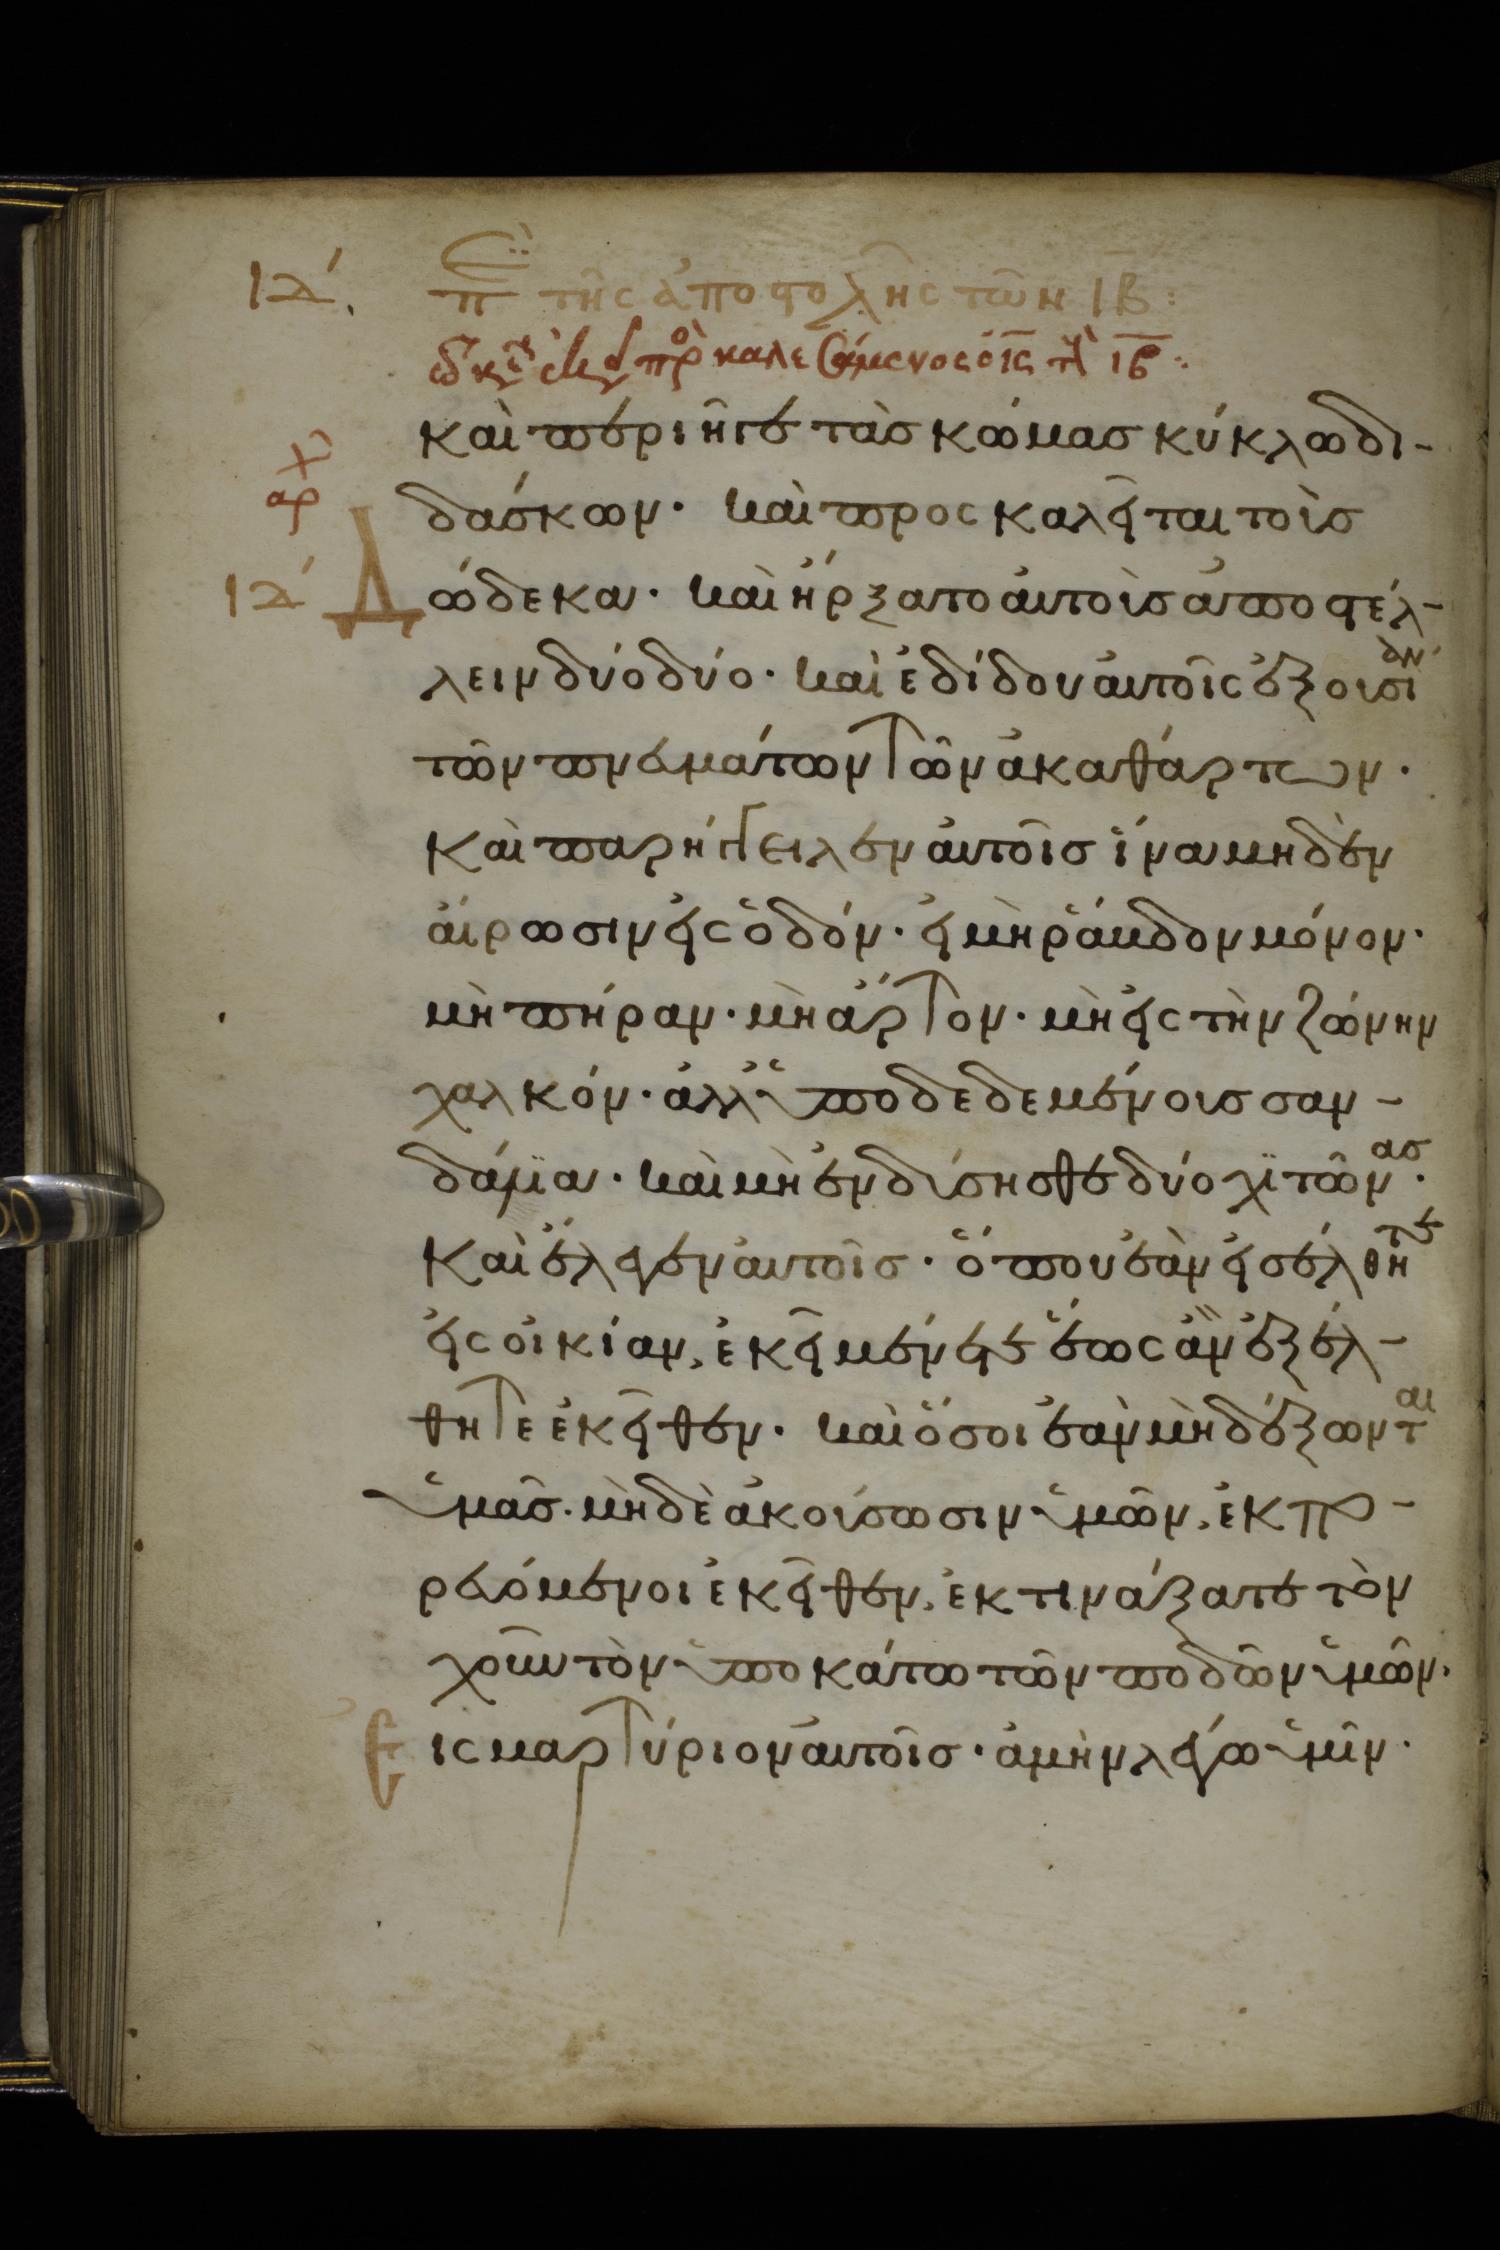 ιδ΄. περὶ τῆς ἀποστολῆς τῶν ιβ:
προσκαλεσάμενος ὁ ις τοὺς ιβ:
καὶ περιῆγε τὰσ κώμασ κύκλω δι-
αρχ
δάσκων· καὶ προσκαλεῖται τοὺσ
ιδ΄ Δώδεκα· καὶ ἤρξατο ἀυτοὺσ ἀποστέλ-
λειν δύο δύο· καὶ ἐδίδου ἀυτοῖς ἐξουσίαν
τῶν πνευμάτων τῶν ἀκαθάρτων.
Καὶ παρήγγειλεν ἀυτοῖσ ἵνα μηδὲν
ἄιρωσιν εἰς ὁδόν· εἰ μὴ ῥάβδον μόνον.
μὴ πήραν· μὴ ἄρτον· μὴ εἰς τὴν ζώνην
χαλκόν· ἀλλ' ὑποδεδεμένουσ σαν-
δάλια· καὶ μὴ ἐνδύσησθε δύο χϊτῶνασ.
Καὶ ἔλεγεν ἀυτοῖσ· ὅπου ἐὰν εἰσέλθητε
εἰς οἰκίαν, ἐκεῖ μένετε ἕως ἂν ἐξέλ-
θητε ἐκεῖθεν· καὶ ὅσοι ἐὰν μὴ δέξωνται
ὑμᾶσ· μηδὲ ἀκούσωσιν ὑμῶν, ἐκπο-
ρευόμενοι ἐκεῖθεν, ἐκτινάξατε τὸν
χοῦν τὸν ὑποκάτω τῶν ποδῶν ὑμῶν.
Εις μαρτύριον ἀυτοῖσ· ἀμὴν λέγω ὑμῖν.